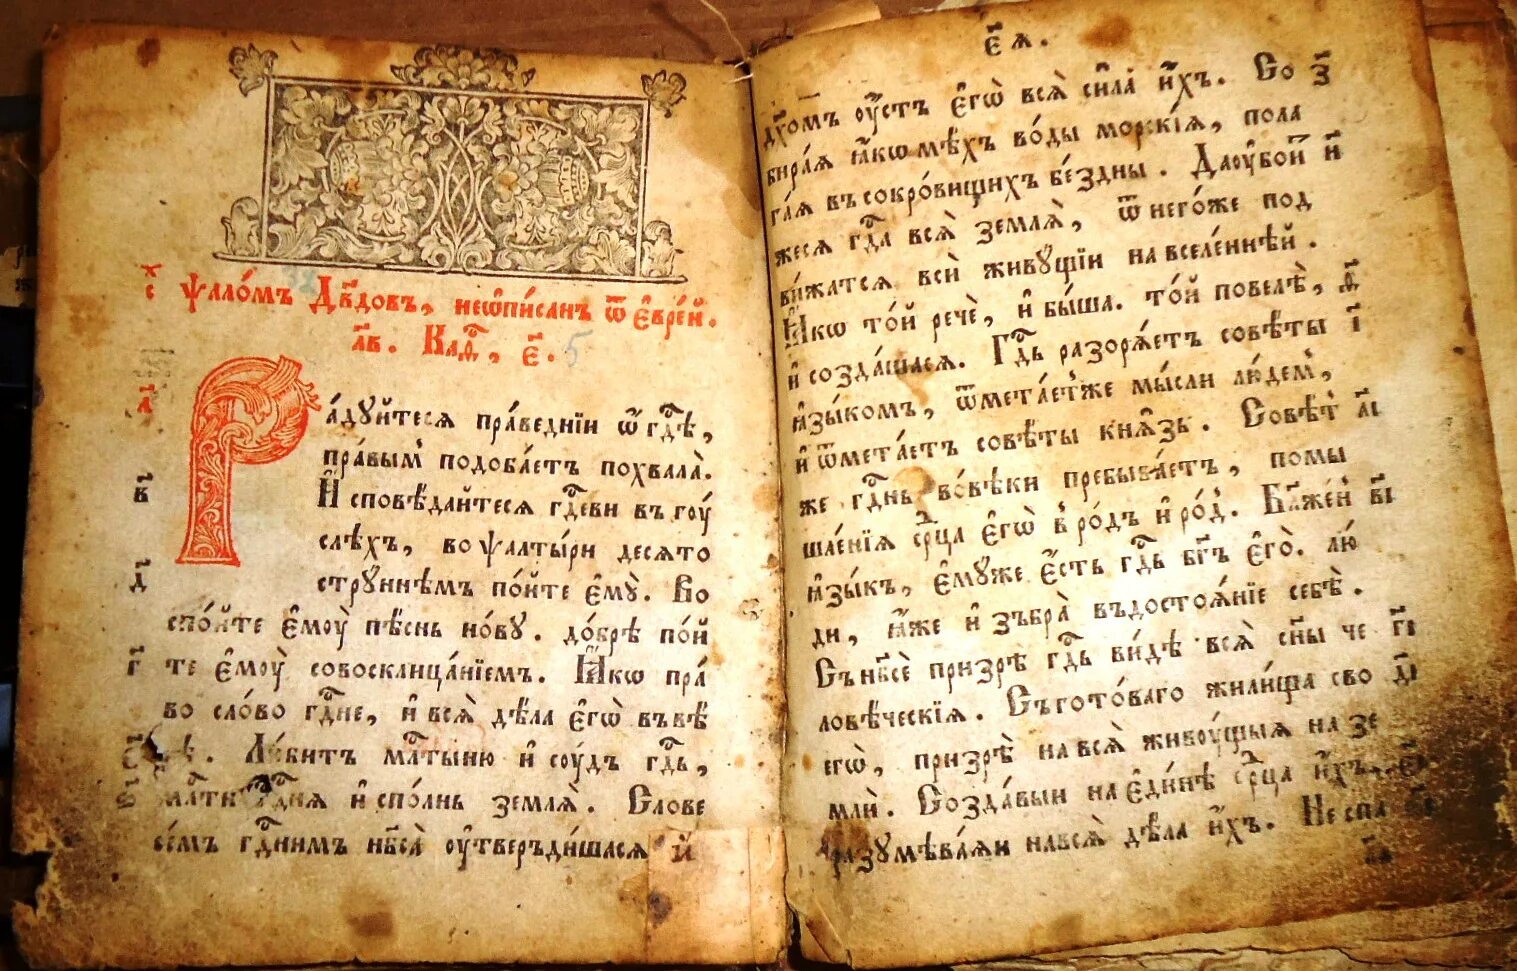 Ѱало́мъ Дв҃довъ, неѡпи́санъ ѿ є҆вре́й.
л҃в. Каѳ, є҃.
Ра́дуйтеся пра́веднїи ѡ҆ гд҇ѣ,
пра́вымъ подоба́етъ похвала̀.
И҆сповѣ́дайтеся гд҇еви въ гоу́
слѣхъ, во ѱалты́ри десято
стру́ннѣмъ по́йте є҆мꙋ̀. Во
спо́йте є҆моу̀ пѣ́снь но́ву. до́брѣ по́й
те є҆моу̀ совосклица́нїемъ. Ꙗ҆́кѡ пра́
во сло́во гд҇не, и҆ вся̀ дѣ́ла є҆гѡ̀ въ вѣ́
рѣ. Лю́битъ мл҇тыню и҆ су́дъ гд҇ь,
мл҇ти гд҇ня и҆спо́лнь земля̀. Слове
се́мъ гд҇нимъ нб҃са̀ оу҆тверъди́шася и҆
є҃ я.
дх҃омъ оу҆́стъ є҆гѡ̀ вся̀ си́ла и҆́хъ. Со
бира́я ꙗ҆́кѡ мѣ́хъ во́ды морскі́я, пола
га́я въ сокро́вищихъ бе́здны. Да оу҆бои́
жеся гд҇а вся̀ земля̀, ѿ него́же под
ви́жатся всѝ живу́щїи на вселе́ннѣй.
Ꙗ҆́кѡ то́й речѐ, и҆ бы́ша. то́й повелѣ̀,
и҆ созда́шася. Гд҇ь разоря́етъ совѣ́ты
ꙗ҆зы́комъ, ѿмета́етже мы́сли лю́демъ,
и҆ ѿмета́етъ совѣ́ты кня̑зь. Совѣ́т
же гд҇нь во вѣ́ки пребыва́етъ, помы
шле́нїя срд҇ца є҆гѡ̀ в ро́дъ и҆ ро́д. Бл҃же́нъ
ꙗ҆зы́къ, є҆му́же є҆́сть гд҇ь бг҃ъ є҆го̀. лю́
ди, ꙗ҆̀же и҆зъбра̀ въ достоя́нїе себѣ̀.
Съ нб҃сѐ призрѣ̀ гд҇ь ви́дѣ вся̀ сн҃ы че
ловѣ́ческїя. Съ гото́ваго жили́ща сво
єгѡ̀, призрѣ̀ на вся̀ живоу́щыя на зе
млѝ. Созда́выи на є҆ди́нѣ срд҇ца и҆́хъ,
разумѣва́яи на вся̀ дѣ́ла и҆́хъ. Не спа